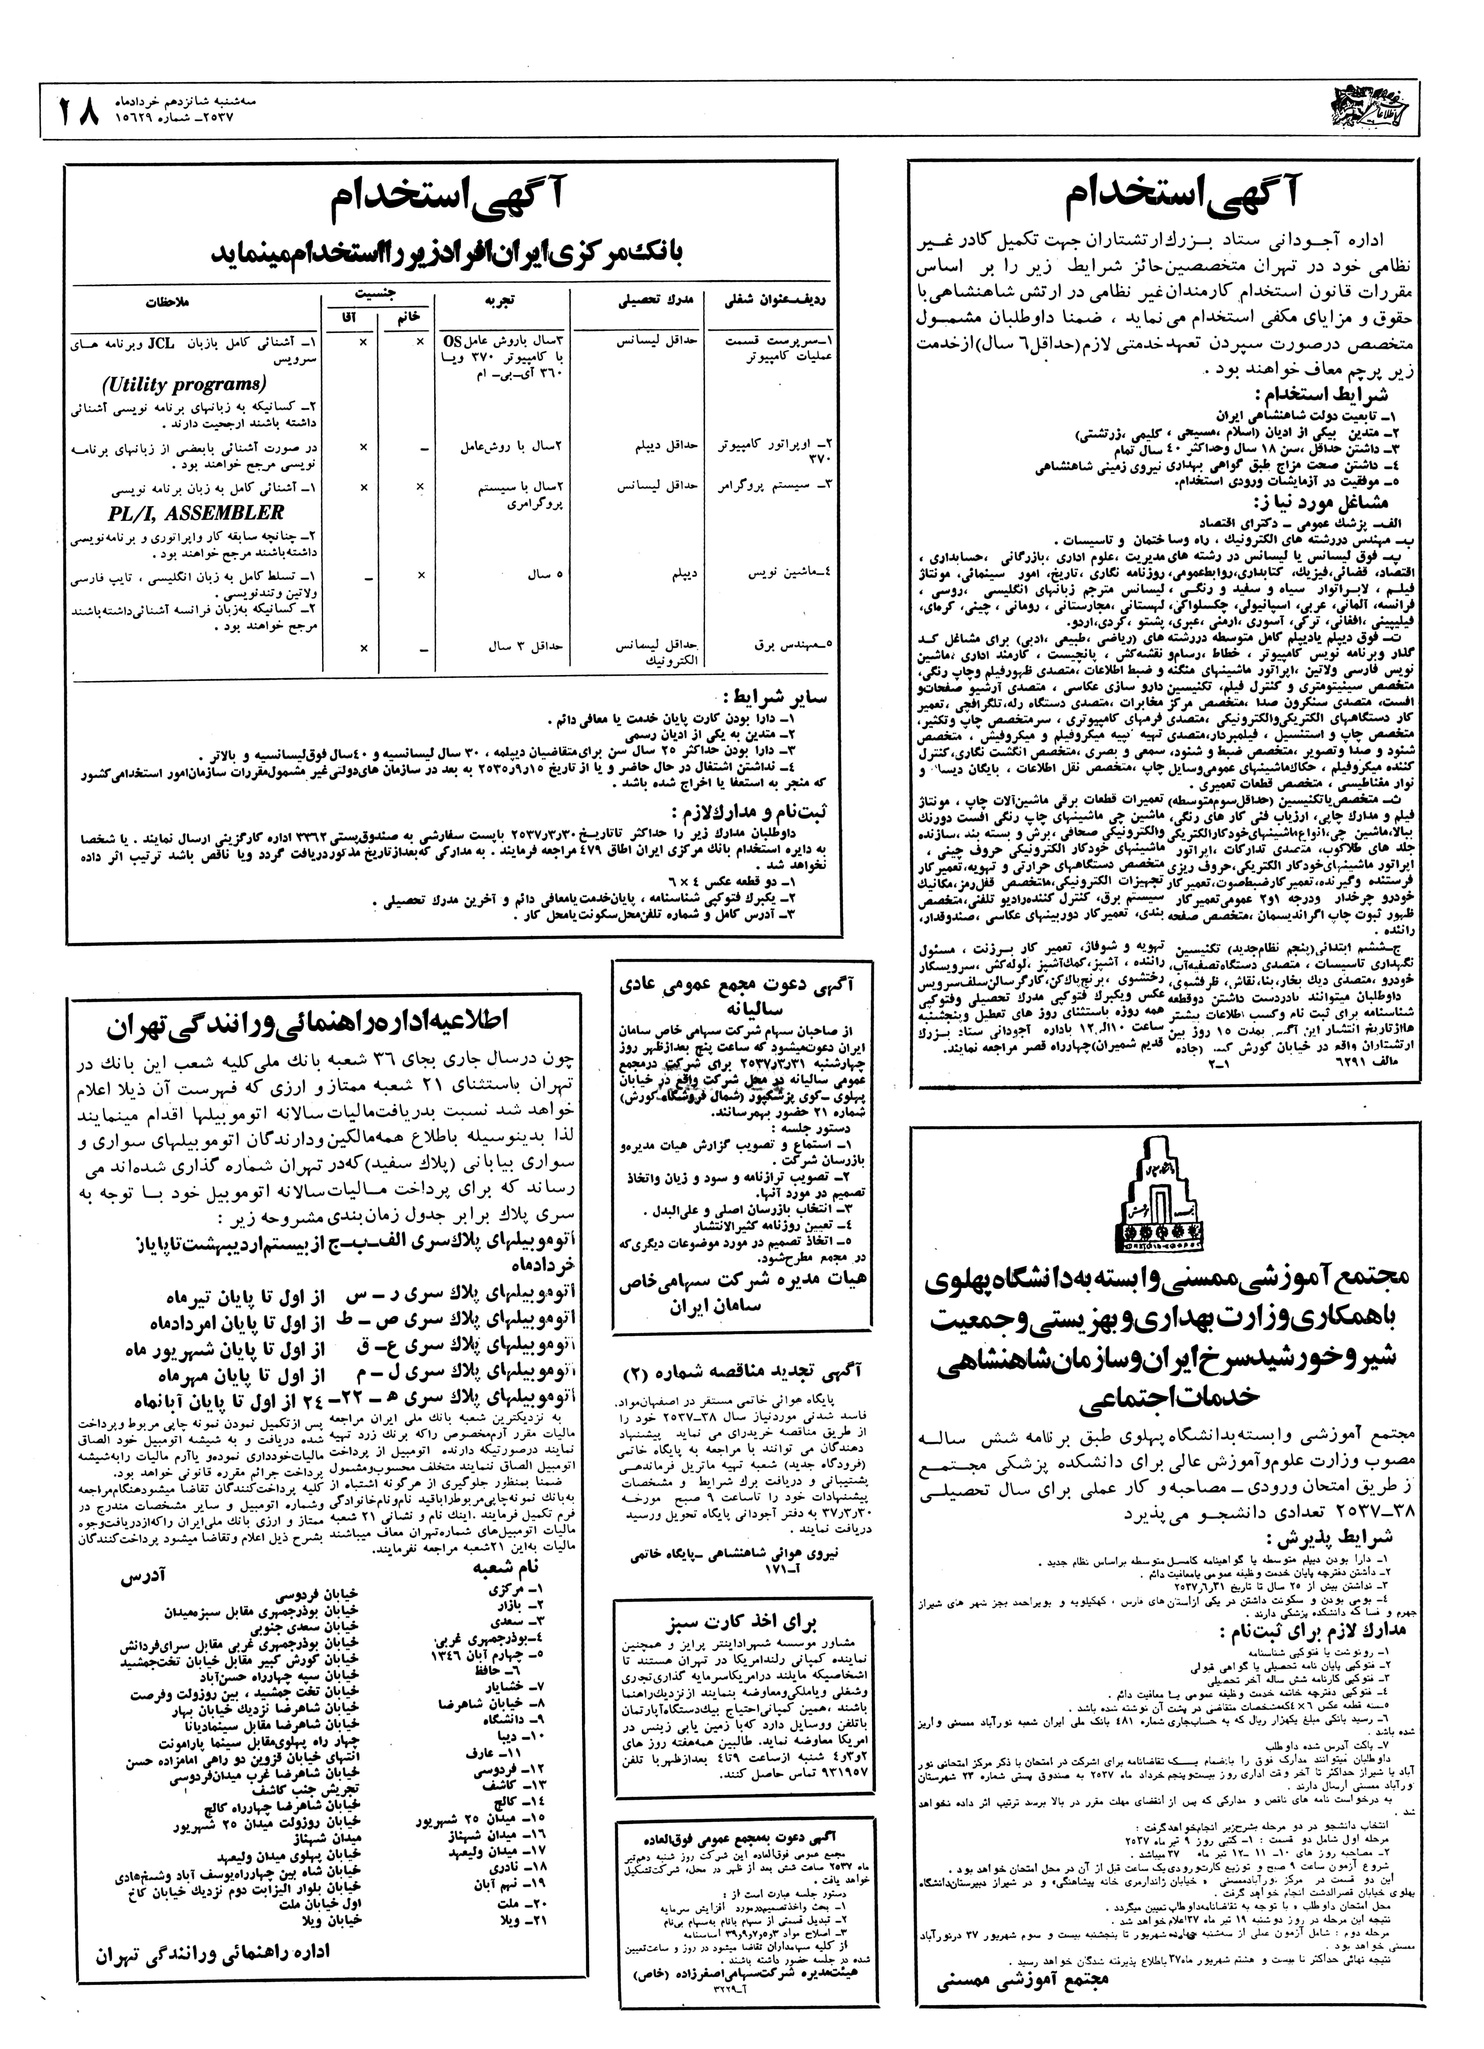 سه‌شنبه شانزدهم خردادماه
۲۵۳۷ـ شماره ۱۵۶۲۹
۱۸
آگهی استخدام
اداره آجودانی ستاد بزرك ارتشتاران جهت تکمیل کادر غیر
نظامی خود در تهران متخصصین حائز شرایط زیر را بر اساس
مقررات قانون استخدام کارمندان غیر نظامی در ارتش شاهنشاهی با
حقوق و مزایای مکفی استخدام می نماید ، ضمنا داوطلبان مشمول
متخصص درصورت سپردن تعهد خدمتی لازم (حداقل ۶ سال) از خدمت
زیر پرچم معاف خواهند بود .
شرایط استخدام :
۱ـ تابعیت دولت شاهنشاهی ایران
۲ـ متدین بیکی از ادیان (اسلام ، مسیحی ، کلیمی ، زرتشتی)
۳ـ داشتن حداقل ، سن ۱۸ سال وحداکثر ۴۰ سال تمام
۴ـ داشتن صحت مزاج طبق گواهی بهداری نیروی زمینی شاهنشاهی
۵ـ موفقیت در آزمایشات ورودی استخدام.
مشاغل مورد نیاز:
الف ـ پزشك عمومی ـ دکترای اقتصاد
ب ـ مهندس دررشته های الکترونیك ، راه وساختمان و تاسیسات .
پ ـ فوق لیسانس یا لیسانس در رشته های مدیریت ، علوم اداری ، بازرگانی ، حسابداری ،
اقتصاد، قضائی، فیزیك، کتابداری، روابط عمومی، روزنامه نگاری ، تاریخ، امور سینمائی، مونتاژ
فیلم ، لابراتوار سیاه و سفید و رنگی ، لیسانس مترجم زبانهای انگلیسی ، روسی ،
فرانسه، آلمانی، عربی، اسپانیولی، چکسلواکی، لهستانی ، مجارستانی ، رومانی ، چینی، کره‌ای،
فیلیپینی ، افغانی، ترکی، آسوری ، ارمنی ، عبری، پشتو ، کردی، اردو.
ت ـ فوق دیپلم یادیپلم کامل متوسطه دررشته های (ریاضی ، طبیعی ، ادبی) برای مشاغل کد
گذار وبرنامه نویس کامپیوتر ، خطاط ، رسام ونقشه کش ، پانچیست ، کارمند اداری ، ماشین
نویس فارسی ولاتین ، اپراتور ماشینهای منگنه و ضبط اطلاعات ، متصدی ظهورفیلم وچاپ رنگی،
متخصص سینیتومتری و کنترل فیلم، تکنیسین دارو سازی عکاسی ، متصدی آرشیو صفحات و
افست، متصدی سنکرون صدا ، متخصص مرکز مخابرات ، متصدی دستگاه رله، تلگرافچی ، تعمیر
کار دستگاههای الکتریکی والکترونیکی ، متصدی فرمهای کامپیوتری ، سرمتخصص چاپ وتکثیر،
متخصص چاپ و استنسیل ، فیلمبردار، متصدی تهیه کپیه میکروفیلم و میکروفیش ، متخصص
شنود و صدا وتصویر ، متخصص ضبط و شنود، سمعی و بصری ، متخصص انگشت نگاری، کنترل
کننده میکروفیلم ، حکاك ماشینهای عمومی وسایل چاپ ، متخصص نقل اطلاعات ، بایگان دیسك و
نوار مغناطیسی ، متخصص قطعات تعمیری .
ث ـ متخصص یا تکنیسین (حداقل سوم متوسطه) تعمیرات قطعات برقی ماشین‌آلات چاپ ، مونتاژ
فیلم و مدارك چاپی، ارزیاب فنی کار های رنگی، ماشین چی ماشینهای چاپ رنگی افست دورنك
ببالا، ماشین چی، انواع ماشینهای خودکار الکتریکی والکترونیکی صحافی ، برش و بسته بند ، سازنده
جلد های طلاکوب، متصدی تدارکات ، اپراتور ماشینهای خودکار الکترونیکی حروف چینی ،
اپراتور ماشینهای خودکار الکتریکی، حروف ریزی متخصص دستگاههای حرارتی و تهویه، تعمیر کار
فرستنده وگیرنده، تعمیر کار ضبط صوت، تعمیر کار تجهیزات الکترونیکی، متخصص قفل رمز، مکانیك
خودرو چرخدار ودرجه ۱و۲ عمومی تعمیر کار سیستم برق، کنترل کننده رادیو تلفنی، متخصص
ظهور ثبوت چاپ اگراندیسمان ، متخصص صفحه بندی، تعمیر کار دوربینهای عکاسی ، صندوقدار،
راننده .
ج ـ ششم ابتدائی (پنجم نظام جدید) تکنیسین تهویه و شوفاژ، تعمیر کار برزنت ، مسئول
نگهداری تاسیسات ، متصدی دستگاه تصفیه آب، راننده ، آشپز، کمك آشپز ، لوله کش ، سرویسکار
خودرو ، متصدی دیك بخار، بنا، نقاش، ظرفشوی، رختشوی ، برنج پاك کن، کارگر سالن سلف سرویس
داوطلبان میتوانند بادردست داشتن دوقطعه عکس ویکبرك فتوکپی مدرك تحصیلی وفتوکپی
شناسنامه برای ثبت نام وکسب اطلاعات بیشتر همه روزه باستثنای روز های تعطیل وپنجشنبه
ها از تاریخ انتشار این آگهی بمدت ۱۵ روز بین ساعت ۱۰ الی ۱۲ باداره آجودانی ستاد بزرك
ارتشتاران واقع در خیابان کورش کبیر (جاده قدیم شمیران) چهارراه قصر مراجعه نمایند.
مالف ۶۲۹۱
۱ـ۲
آگهی استخدام
بانك مرکزی ایران افراد زیر را استخدام مینماید
ردیف ـ عنوان شغلی مدرك تحصیلی تجربه جنسیت ملاحظات
خانم آقا
۱ـ سرپرست قسمت عملیات کامپیوتر حداقل لیسانس ۳سال باروش عامل OS با کامپیوتر ۳۷۰ ویا ۳۶۰ آی ـ بی ـ ام × × ۱ـ آشنائی کامل بازبان JCL وبرنامه های سرویس
(Utility programs)
۲ـ کسانیکه به زبانهای برنامه نویسی آشنائی داشته باشند ارجحیت دارند .
۲ـ اوپراتور کامپیوتر ۳۷۰ حداقل دیپلم ۲سال با روش عامل ـ × در صورت آشنائی بابعضی از زبانهای برنامه نویسی مرجح خواهند بود .
۳ـ سیستم پروگرامر حداقل لیسانس ۲سال با سیستم پروگرامری × × ۱ـ آشنائی کامل به زبان برنامه نویسی
PL/I, ASSEMBLER
۲ـ چنانچه سابقه کار واپراتوری و برنامه نویسی داشته باشند مرجح خواهند بود .
۴ـ ماشین نویس دیپلم ۵ سال × ـ ۱ـ تسلط کامل به زبان انگلیسی ، تایپ فارسی ولاتین وتندنویسی .
۲ـ کسانیکه به زبان فرانسه آشنائی داشته باشند مرجح خواهند بود .
۵ـ مهندس برق حداقل لیسانس الکترونیك حداقل ۳ سال ـ ×
سایر شرایط :
۱ـ دارا بودن کارت پایان خدمت یا معافی دائم .
۲ـ متدین به یکی از ادیان رسمی
۳ـ دارا بودن حداکثر ۲۵ سال سن برای متقاضیان دیپلمه ، ۳۰ سال لیسانسیه و ۴۰سال فوق لیسانسیه و بالاتر .
۴ـ نداشتن اشتغال در حال حاضر و یا از تاریخ ۱۵ر۱ر۲۵۳۵ به بعد در سازمان های دولتی غیر مشمول مقررات سازمان امور استخدامی کشور
که منجر به استعفا یا اخراج شده باشد .
ثبت نام و مدارك لازم :
داوطلبان مدارك زیر را حداکثر تاتاریخ ۳۰ر۳ر۲۵۳۷ باپست سفارشی به صندوق پستی ۳۳۶۲ اداره کارگزینی ارسال نمایند . یا شخصا
به دایره استخدام بانك مرکزی ایران اطاق ۴۷۹ مراجعه فرمایند . به مدارکی که بعد از تاریخ مذکور دریافت گردد ویا ناقص باشد ترتیب اثر داده
نخواهد شد .
۱ـ دو قطعه عکس ۴ × ۶
۲ـ یکبرك فتوکپی شناسنامه ، پایان خدمت یا معافی دائم و آخرین مدرك تحصیلی .
۳ـ آدرس کامل و شماره تلفن محل سکونت یا محل کار .
آگهی دعوت مجمع عمومی عادی
سالیانه
از صاحبان سهام شرکت سهامی خاص سامان
ایران دعوت میشود که ساعت پنج بعد از ظهر روز
چهارشنبه ۳۱ر۳ر۲۵۳۷ برای شرکت درمجمع
عمومی سالیانه در محل شرکت واقع در خیابان
پهلوی ـ کوی پزشکپور (شمال فروشگاه کورش)
شماره ۲۱ حضور بهمرسانند.
دستور جلسه :
۱ـ استماع و تصویب گزارش هیات مدیره و
بازرسان شرکت .
۲ـ تصویب ترازنامه و سود و زیان واتخاذ
تصمیم در مورد آنها.
۳ـ انتخاب بازرسان اصلی و علی‌البدل .
۴ـ تعیین روزنامه کثیرالانتشار
۵ـ اتخاذ تصمیم در مورد موضوعات دیگری که
در مجمع مطرح شود.
هیات مدیره شرکت سهامی خاص
سامان ایران
آگهی تجدید مناقصه شماره (۲)
پایگاه هوائی خاتمی مستقر در اصفهان مواد
فاسد شدنی موردنیاز سال ۳۸ـ۲۵۳۷ خود را
از طریق مناقصه خریداری می نماید پیشنهاد
دهندگان می توانند با مراجعه به پایگاه خاتمی
(فرودگاه جدید) شعبه تهیه ماتریل فرماندهی
پشتیبانی و دریافت برك شرایط و مشخصات
پیشنهادات خود را تاساعت ۹ صبح مورخه
۳۰ر۳ر۳۷ به دفتر آجودانی پایگاه تحویل ورسید
دریافت نمایند .
نیروی هوائی شاهنشاهی ـ پایگاه خاتمی
آـ۱۷۱
برای اخذ کارت سبز
مشاور موسسه شهرادا‌ینتر پرایز و همچنین
نماینده کمپانی رلند امریکا در تهران هستند تا
اشخاصیکه مایلند در امریکا سرمایه گذاری تجاری
وشغلی ویا ملکی ومعاوضه بنمایند از نزدیك راهنما
باشند ، همین کمپانی احتیاج بیك دستگاه آپارتمان
با تلفن ووسایل دارد که با زمین یابی زینس در
امریکا معاوضه نماید. طالبین همه هفته روز های
۲و۳و۴ شنبه از ساعت ۹تا۴ بعدازظهر با تلفن
۹۳۱۹۵۷ تماس حاصل کنند.
آگهی دعوت به مجمع عمومی فوق العاده
مجمع عمومی فوق العاده این شرکت روز شنبه دهم تیر
ماه ۲۵۳۷ ساعت شش بعد از ظهر در محل، شرکت تشکیل
خواهد یافت .
دستور جلسه عبارت است از :
۱ـ بحث واخذ تصمیم درمورد افزایش سرمایه
۲ـ تبدیل قسمتی از سهام بانام به سهام بی نام
۳ـ اصلاح مواد ۳و۵و۷و۹و۳۹ اساسنامه
از کلیه سهامداران تقاضا میشود در روز و ساعت تعیین
شده در جلسه حضور داشته باشند .
هیئت مدیره شرکت سهامی اصغرزاده (خاص)
آـ۳۲۲۹
اطلاعیه اداره راهنمائی و رانندگی تهران
چون درسال جاری بجای ۳۶ شعبه بانك ملی کلیه شعب این بانك در
تهران باستثنای ۲۱ شعبه ممتاز و ارزی که فهرست آن ذیلا اعلام
خواهد شد نسبت بدریافت مالیات سالانه اتوموبیلها اقدام مینمایند
لذا بدینوسیله باطلاع همه مالکین ودارندگان اتوموبیلهای سواری و
سواری بیابانی (پلاك سفید) که در تهران شماره گذاری شده‌اند می
رساند که برای پرداخت مالیات سالانه اتوموبیل خود با توجه به
سری پلاك برابر جدول زمان بندی مشروحه زیر :
اتوموبیلهای پلاك سری الف ـ ب ـ ج از بیستم اردیبهشت تا پایان
خردادماه
اتوموبیلهای پلاك سری ر ـ س از اول تا پایان تیرماه
اتوموبیلهای پلاك سری ص ـ ط از اول تا پایان امردادماه
اتوموبیلهای پلاك سری ع ـ ق از اول تا پایان شهریور ماه
اتوموبیلهای پلاك سری ل ـ م از اول تا پایان مهرماه
اتوموبیلهای پلاك سری ه ـ ۲۲ـ ۲۴ از اول تا پایان آبانماه
به نزدیکترین شعبه بانك ملی ایران مراجعه
مالیات مقرر آرم مخصوص راکه برنك زرد تهیه
نمایند درصورتیکه دارنده اتومبیل از پرداخت
اتومبیل الصاق ننمایند متخلف محسوب ومشمول
ضمنا بمنظور جلوگیری از هرگونه اشتباه از
به بانك نمونه چاپی مربوط را باقید نام ونام خانوادگی
فرم تکمیل فرمایند . اینك نام و نشانی ۲۱ شعبه
مالیات اتومبیل های شماره تهران معاف میباشند
مالیات به این ۲۱شعبه مراجعه نفرمایند.
پس از تکمیل نمودن نمونه چاپی مربوط وپرداخت
شده دریافت و به شیشه اتومبیل خود الصاق
مالیات خودداری نموده ویا آرم مالیات را به شیشه
پرداخت جرائم مقرره قانونی خواهد بود.
کلیه پرداخت کنندگان تقاضا میشود هنگام مراجعه
وشماره اتومبیل و سایر مشخصات مندرج در
ممتاز و ارزی بانك ملی ایران راکه از دریافت وجوه
بشرح ذیل اعلام وتقاضا میشود پرداخت کنندگان
نام شعبه آدرس
۱ـ مرکزی خیابان فردوسی
۲ـ بازار خیابان بوذرجمهری مقابل سبزه میدان
۳ـ سعدی خیابان سعدی جنوبی
۴ـ بوذرجمهری غربی خیابان بوذرجمهری غربی مقابل سرای فردانش
۵ـ چهارم آبان ۱۳۴۶ خیابان کورش کبیر مقابل خیابان تخت جمشید
۶ـ حافظ خیابان سپه چهارراه حسن آباد
۷ـ خشایار خیابان تخت جمشید ، بین روزولت وفرصت
۸ـ خیابان شاهرضا خیابان شاهرضا نزدیك خیابان بهار
۹ـ دانشگاه خیابان شاهرضا مقابل سینما دیانا
۱۰ـ دیبا چهار راه پهلوی مقابل سینما پارامونت
۱۱ـ عارف انتهای خیابان قزوین دو راهی امامزاده حسن
۱۲ـ فردوسی خیابان شاهرضا غرب میدان فردوسی
۱۳ـ کاشف تجریش جنب کاشف
۱۴ـ کالج خیابان شاهرضا چهارراه کالج
۱۵ـ میدان ۲۵ شهریور خیابان روزولت میدان ۲۵ شهریور
۱۶ـ میدان شهناز میدان شهناز
۱۷ـ میدان ولیعهد خیابان پهلوی میدان ولیعهد
۱۸ـ نادری خیابان شاه بین چهارراه یوسف آباد وشیخ هادی
۱۹ـ نهم آبان خیابان بلوار الیزابت دوم نزدیك خیابان کاخ
۲۰ـ ملت اول خیابان ملت
۲۱ـ ویلا خیابان ویلا
اداره راهنمائی و رانندگی تهران
مجتمع آموزشی ممسنی وابسته به دانشگاه پهلوی
باهمکاری وزارت بهداری و بهزیستی و جمعیت
شیر و خورشید سرخ ایران و سازمان شاهنشاهی
خدمات اجتماعی
مجتمع آموزشی وابسته بدانشگاه پهلوی طبق برنامه شش ساله
مصوب وزارت علوم وآموزش عالی برای دانشکده پزشکی مجتمع
از طریق امتحان ورودی ـ مصاحبه و کار عملی برای سال تحصیلی
۳۸ـ۲۵۳۷ تعدادی دانشجو می پذیرد
شرایط پذیرش :
۱ـ دارا بودن دیپلم متوسطه یا گواهینامه کامل متوسطه براساس نظام جدید .
۲ـ داشتن دفترچه پایان خدمت وظیفه عمومی یا معافیت دائم .
۳ـ نداشتن بیش از ۲۵ سال تا تاریخ ۳۱ر۶ر۲۵۳۷
۴ـ بومی بودن و سکونت داشتن در یکی از استان های فارس ، کهکیلویه و بویراحمد بجز شهر های شیراز
جهرم و فسا که دانشکده پزشکی دارند .
مدارك لازم برای ثبت نام :
۱ـ رونوشت یا فتوکپی شناسنامه
۲ـ فتوکپی پایان نامه تحصیلی یا گواهی قبولی
۳ـ فتوکپی کارنامه شش ساله آخر تحصیلی
۴ـ فتوکپی دفترچه خاتمه خدمت وظیفه عمومی یا معافیت دائم .
۵ـ سه قطعه عکس ۶×۴ که مشخصات متقاضی در پشت آن نوشته شده باشد .
۶ـ رسید بانکی مبلغ یکهزار ریال که به حساب جاری شماره ۴۸۱ بانك ملی ایران شعبه نورآباد ممسنی واریز
شده باشد .
۷ـ پاکت آدرس شده داوطلب
داوطلبان میتوانند مدارك فوق را بانضمام یك تقاضانامه برای شرکت در امتحان با ذکر مرکز امتحانی نور
آباد یا شیراز حداکثر تا آخر وقت اداری روز بیست وپنجم خرداد ماه ۲۵۳۷ به صندوق پستی شماره ۲۳ شهرستان
نورآباد ممسنی ارسال دارند .
به درخواست نامه های ناقص و مدارکی که پس از انقضای مهلت مقرر در بالا برسد ترتیب اثر داده نخواهد
شد .
انتخاب دانشجو در دو مرحله بشرح زیر انجام خواهد گرفت :
مرحله اول شامل دو قسمت : ۱ـ کتبی روز ۹ تیرماه ۲۵۳۷
۲ـ مصاحبه روز های ۱۰ـ ۱۱ ـ۱۲ تیر ماه ۳۷ میباشد .
شروع آزمون ساعت ۹ صبح و توزیع کارت ورودی یك ساعت قبل از آن در محل امتحان خواهد بود .
این دو قسمت در مرکز نورآباد ممسنی « خیابان ژاندارمری خانه پیشاهنگی» و در شیراز دبیرستان دانشگاه
پهلوی خیابان قصرالدشت انجام خواهد گرفت .
محل امتحان داوطلب ه با توجه به تقاضانامه داوطلب تعیین میگردد .
نتیجه این مرحله در روز دوشنبه ۱۹ تیر ماه ۳۷ اعلام خواهد شد .
مرحله دوم : شامل آزمون عملی از سه‌شنبه چهارده شهریور تا پنجشنبه بیست و سوم شهریور ۳۷ درنورآباد
ممسنی خواهد بود .
نتیجه نهائی حداکثر تا بیست و هشتم شهریور ماه ۳۷ باطلاع پذیرفته شدگان خواهد رسید .
مجتمع آموزشی ممسنی